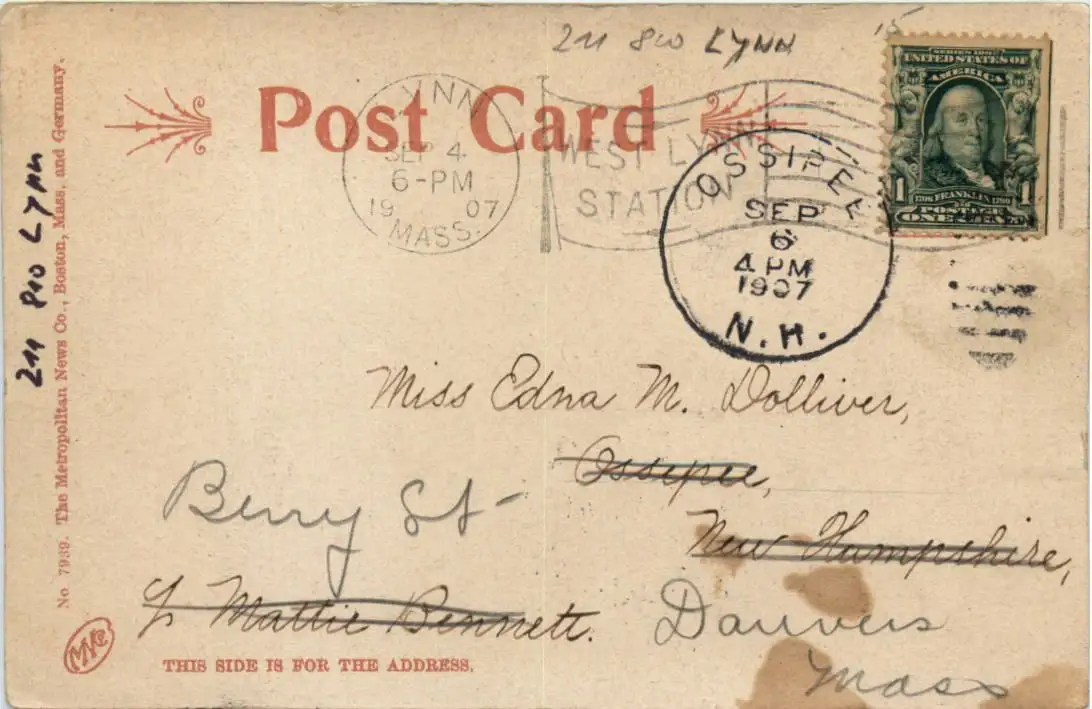 211 810 LYNN 15
Post Card
LYNN
SEP 4
6-PM
19 07
MASS.
WEST LYNN
STATION
OSSIPEE
SEP
6
4 PM
1907
N.H.
SERIES 1902
UNITED STATES OF
AMERICA
1 1
1706 FRANKLIN 1790
POSTAGE
ONE CENT
Miss Edna M. Dolliver,
Ossipee,
New Hampshire,
Berry St-
c/o Mattie Bennett.
Danvers
Mass
THIS SIDE IS FOR THE ADDRESS.
211 810 Lynn
No. 7939. The Metropolitan News Co., Boston, Mass. and Germany.
MNCo